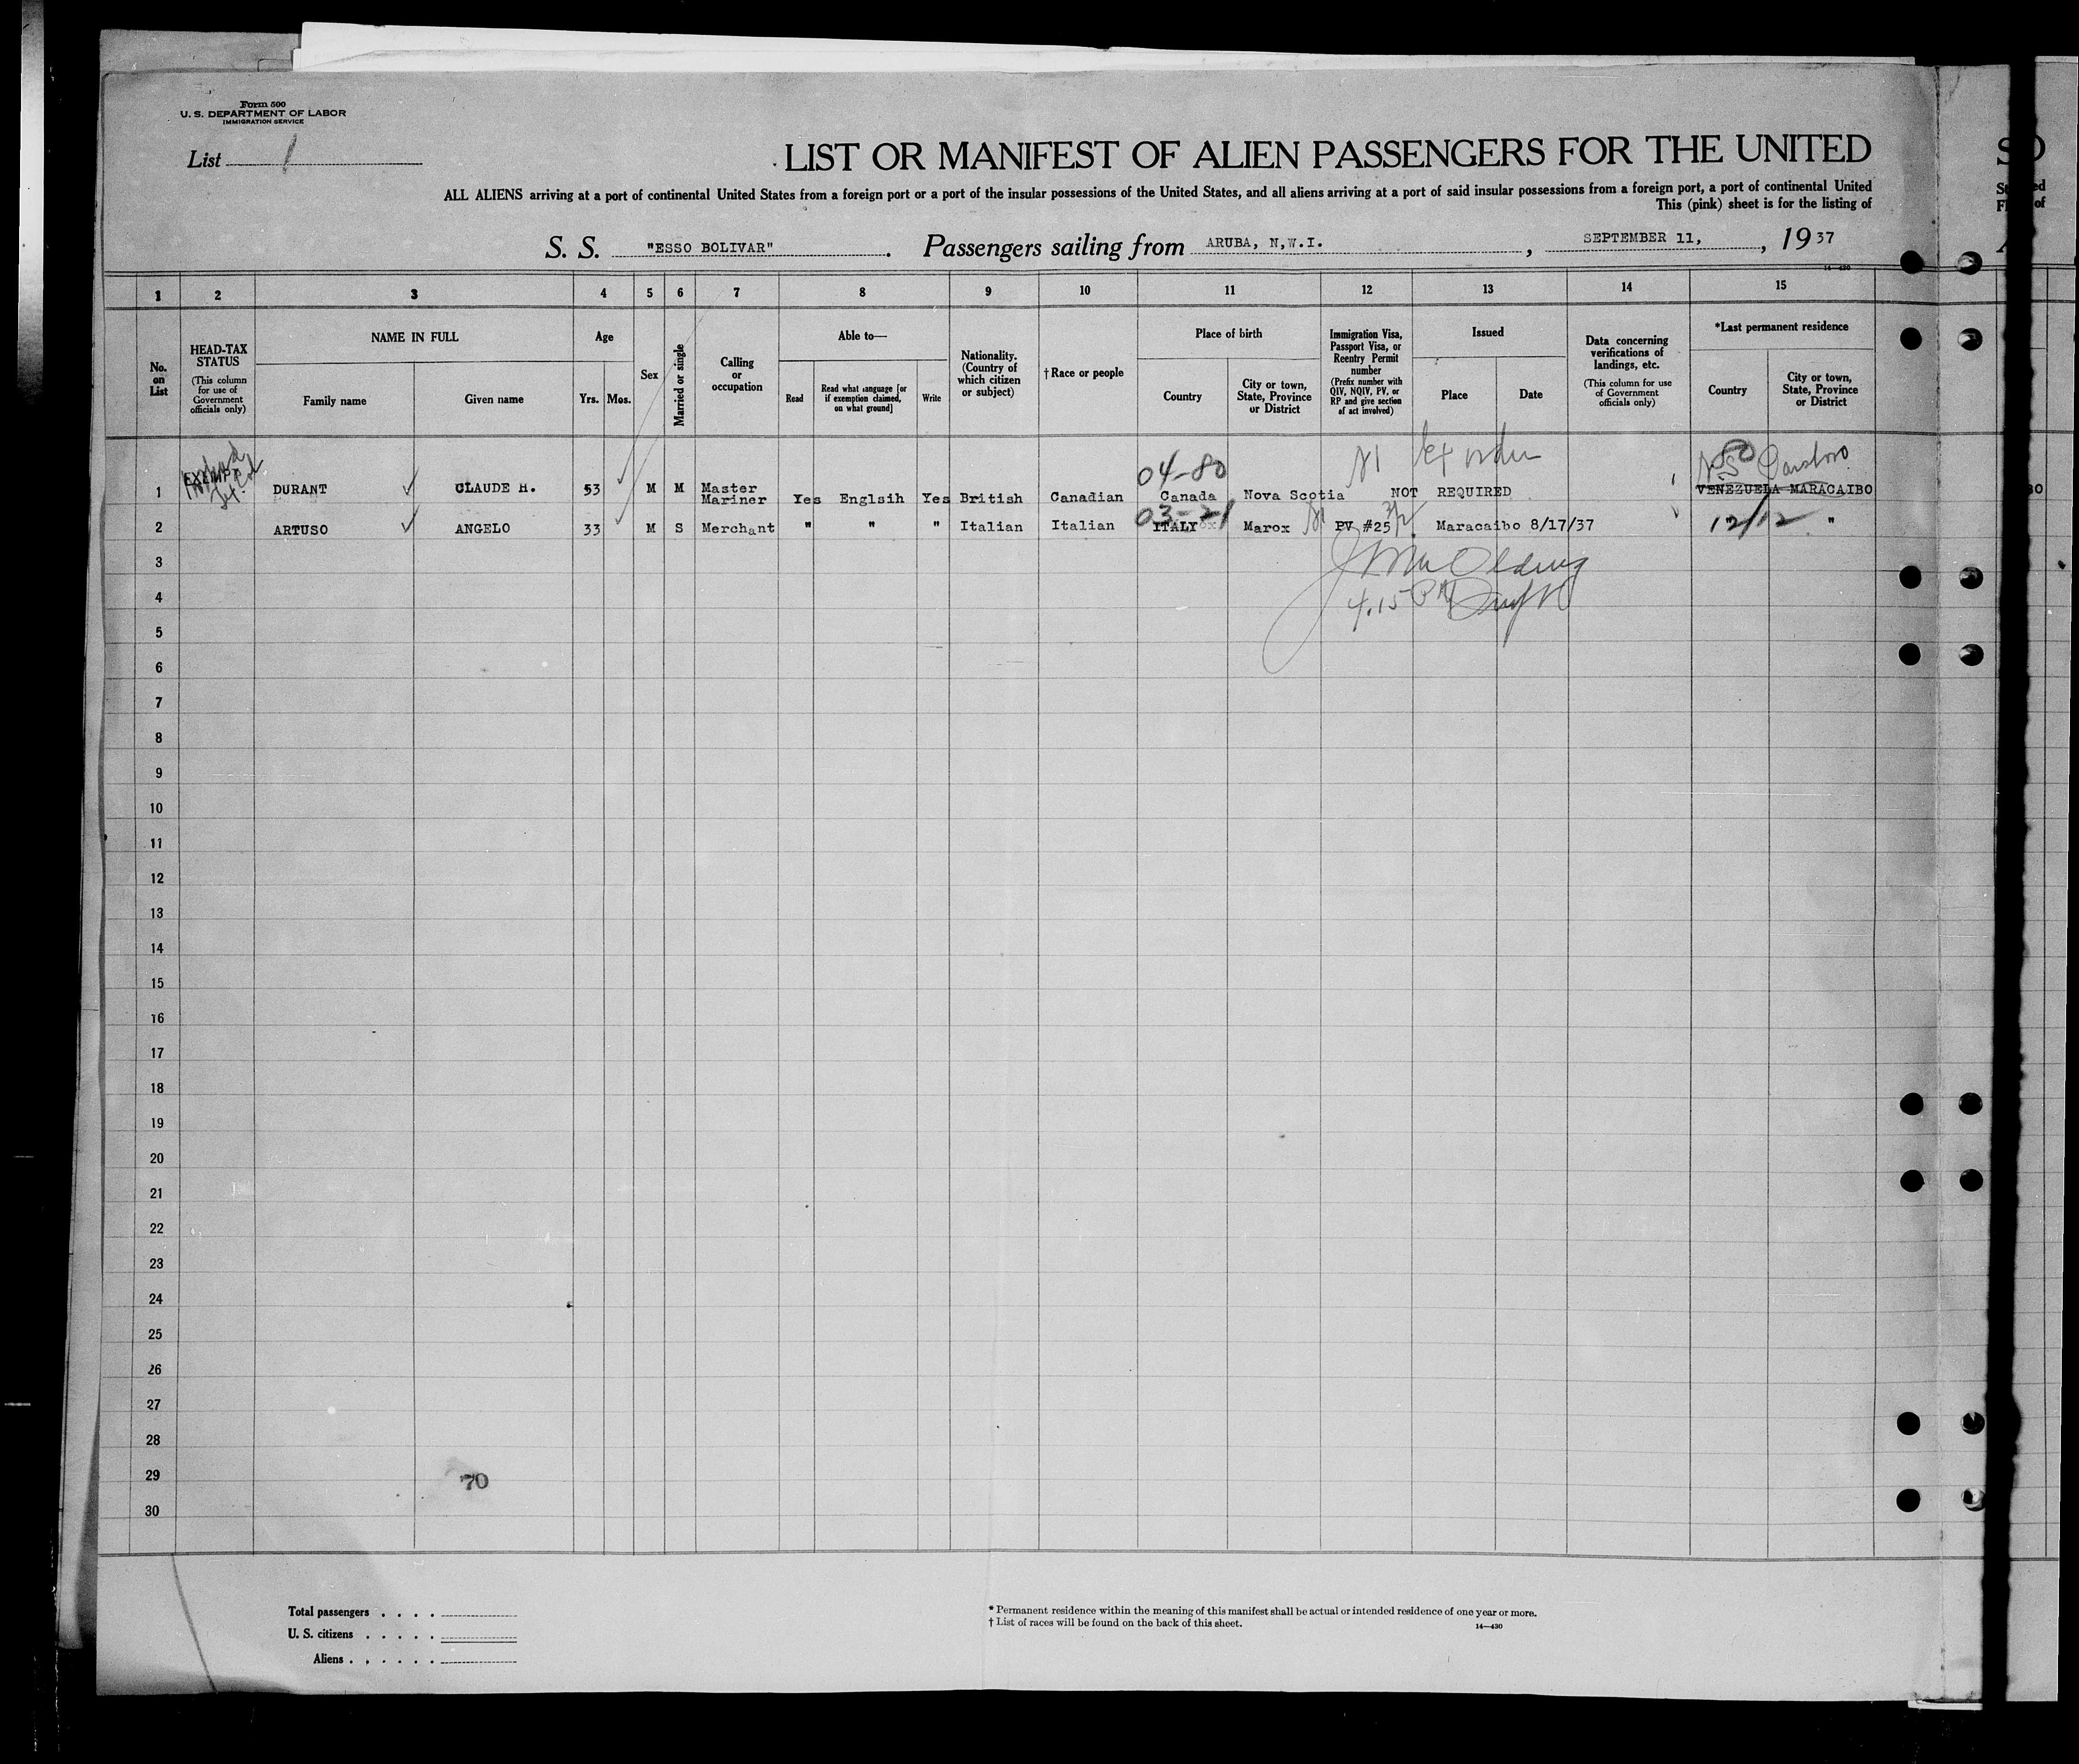 Form 500
U. S. DEPARTMENT OF LABOR
IMMIGRATION SERVICE
List 1
LIST OR MANIFEST OF ALIEN PASSENGERS FOR THE UNITED
ALL ALIENS arriving at a port of continental United States from a foreign port or a port of the insular possessions of the United States, and all aliens arriving at a port of said insular possessions from a foreign port, a port of continental United
This (pink) sheet is for the listing of
S. S. "ESSO BOLIVAR". Passengers sailing from ARUBA, N,W.I., SEPTEMBER 11, , 1937
14—430
1 2 3 4 5 6 7 8 9 10 11 12 13 14 15
No. on List
HEAD-TAX STATUS
(This column for use of Government officials only)
NAME IN FULL
Family name
Given name
Age
Yrs. Mos.
Sex
Married or single
Calling or occupation
Able to—
Read
Read what language [or if exemption claimed, on what ground]
Write
Nationality. (Country of which citizen or subject)
†Race or people
Place of birth
Country
City or town, State, Province or District
Immigration Visa, Passport Visa, or Reentry Permit number
(Prefix number with QIV, NQIV, PV, or RP and give section of act involved)
Issued
Place
Date
Data concerning verifications of landings, etc.
(This column for use of Government officials only)
*Last permanent residence
Country
City or town, State, Province or District
04-80
1 EXEMPT DURANT CLAUDE H. 53 M M Master Mariner Yes Englsih Yes British Canadian Canada Nova Scotia NOT REQUIRED VENEZUELA MARACAIBO
03-21
2 ARTUSO ANGELO 33 M S Merchant " " " Italian Italian ITALY Marox PV #25 Maracaibo 8/17/37 12/12 "
3
4 4.15 PM
5
6
7
8
9
10
11
12
13
14
15
16
17
18
19
20
21
22
23
24
25
26
27
28
29 70
30
Total passengers . . . .
U. S. citizens . . . . .
Aliens . . . . . .
* Permanent residence within the meaning of this manifest shall be actual or intended residence of one year or more.
† List of races will be found on the back of this sheet.
14—430